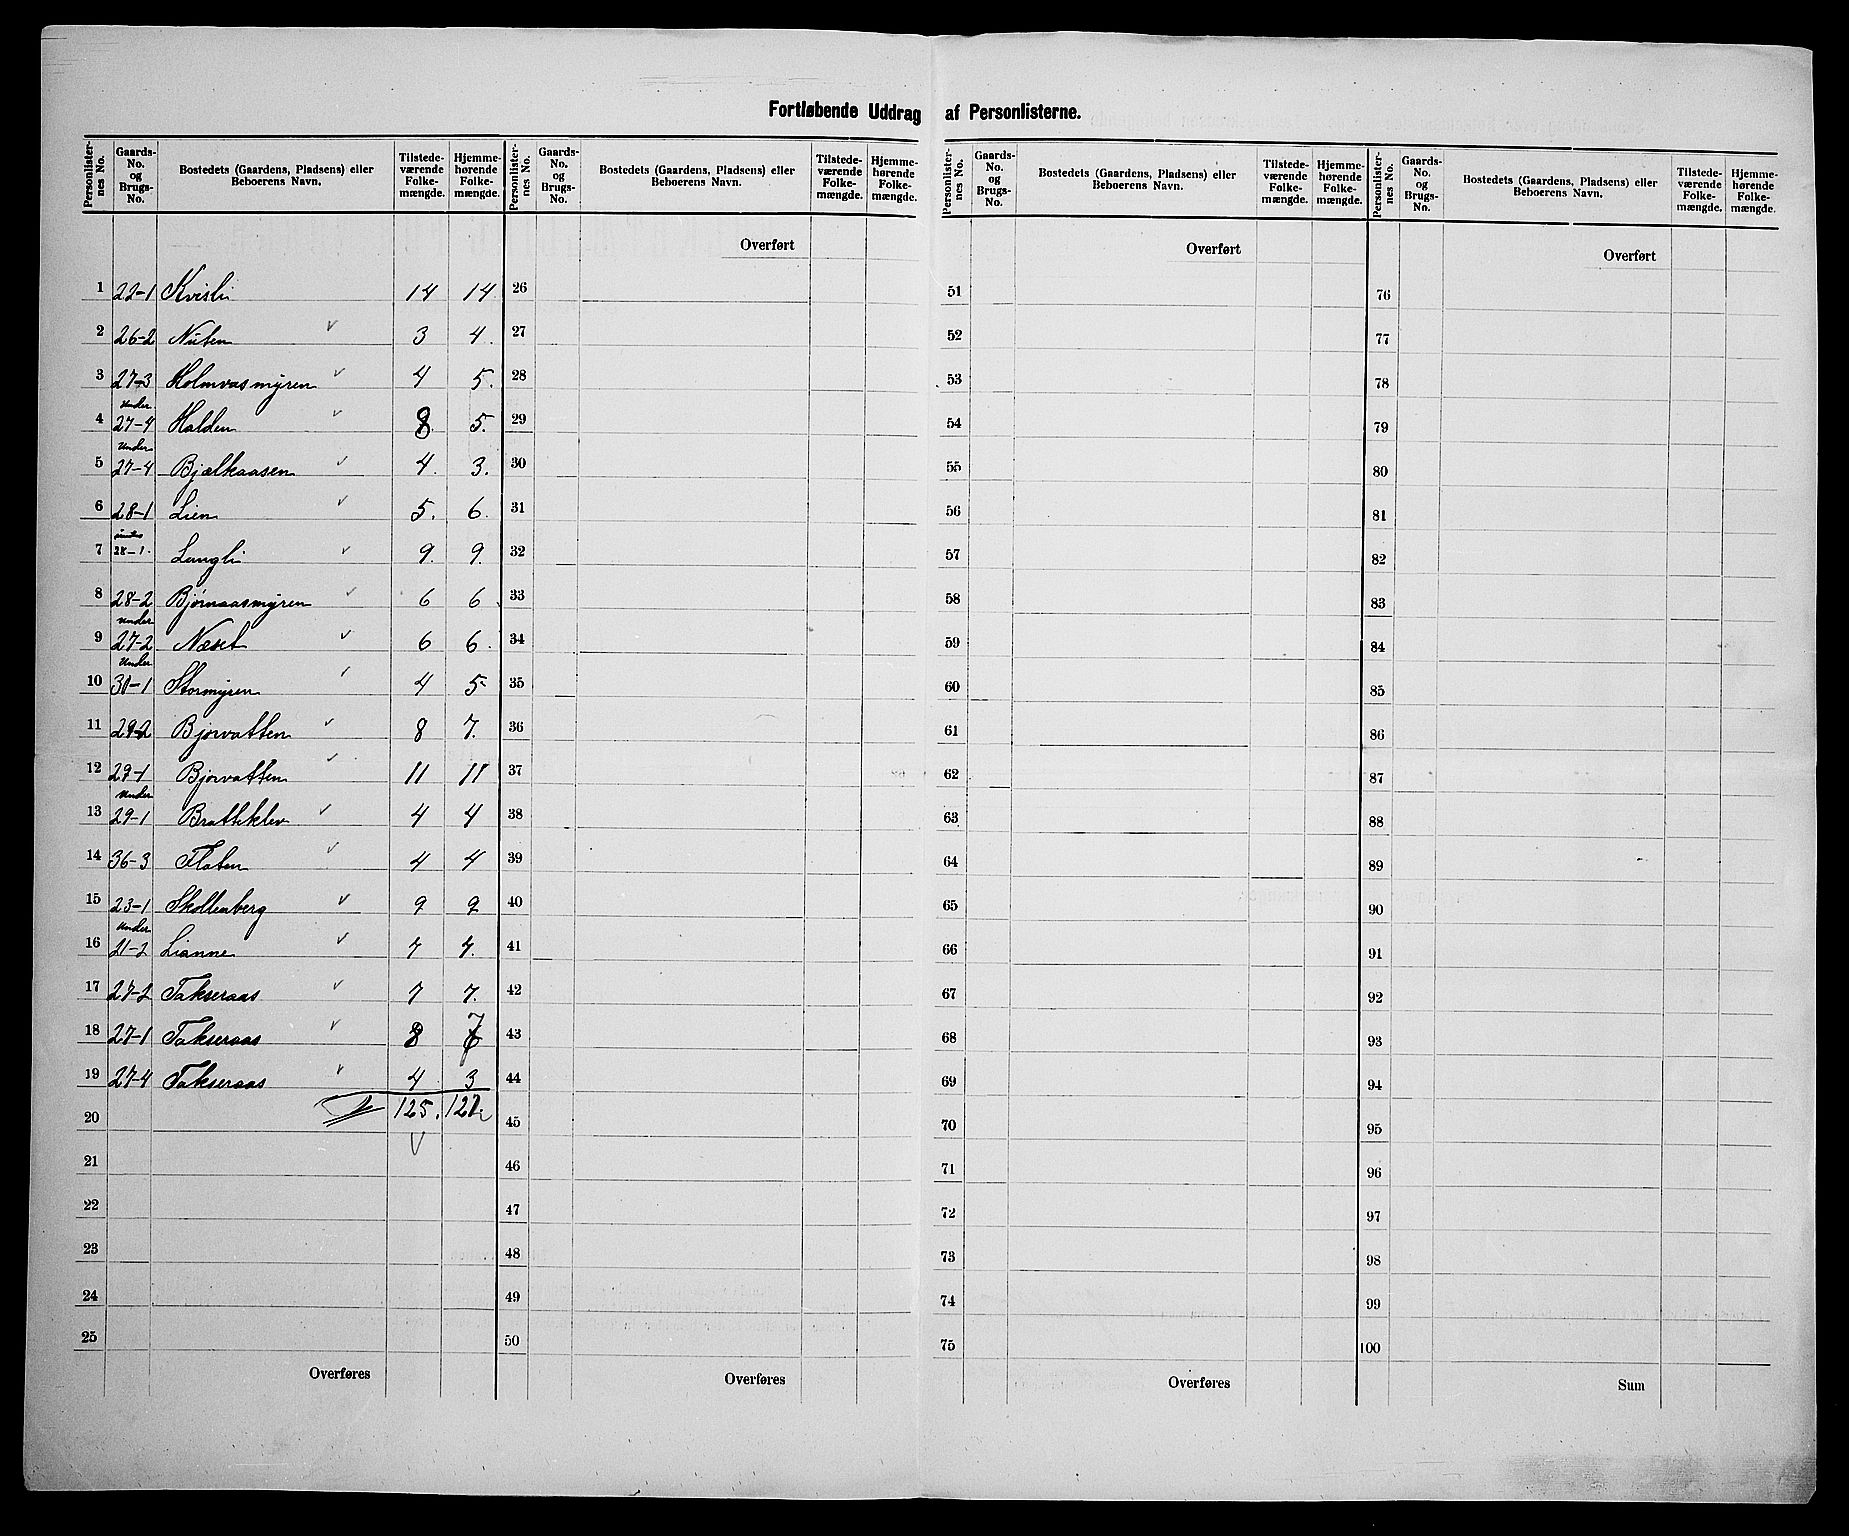 Fortløbende Uddrag af Personlisterne.
Personlister-nes No. Gaards-No. og Brugs-No. Bostedets (Gaardens, Pladsens) eller Beboerens Navn. Tilstede-værende Folke-mængde. Hjemme-hørende Folke-mængde.
Personlister-nes No. Gaards-No. og Brugs-No. Bostedets (Gaardens, Pladsens) eller Beboerens Navn. Tilstede-værende Folke-mængde. Hjemme-hørende Folke-mængde.
Personlister-nes No. Gaards-No. og Brugs-No. Bostedets (Gaardens, Pladsens) eller Beboerens Navn. Tilstede-værende Folke-mængde. Hjemme-hørende Folke-mængde.
Personlister-nes No. Gaards-No. og Brugs-No. Bostedets (Gaardens, Pladsens) eller Beboerens Navn. Tilstede-værende Folke-mængde. Hjemme-hørende Folke-mængde.
Overført Overført Overført
1 22-1 Kvisli 14 14 26 51 76
2 26-2 Nuten ✓ 3 4. 27 52 77
3 27-3 Holmvasmyren ✓ 4 5. 28 53 78
under
4 27-4 Halden ✓ 8. 5. 29 54 79
under
5 27-4 Bjælkaasen ✓ 4. 3. 30 55 80
6 28-1 Lien ✓ 5. 6. 31 56 81
under
7 28-1. Langli ✓ 9. 9. 32 57 82
8 28-2 Bjørnaasmyren ✓ 6 6. 33 58 83
under
9 27-2 Næset ✓ 6 6. 34 59 84
under
10 30-1 Stormyren 4 5- 35 60 85
11 29-2 Bjørvatten ✓ 8 7. 36 61 86
12 29-1 Bjørvatten ✓ 11 11 37 62 87
under
13 29-1 Bratteklev ✓ 4 4 38 63 88
14 36-3 Flaten ✓ 4 4 39 64 89
15 23-1 Skollenberg ✓ 9 9 40 65 90
under
16 21-2 Lianne ✓ 7 7. 41 66 91
17 27-2 Takseraas ✓ 7 7. 42 67 92
18 27-1 Takseraas ✓ 8 7 43 68 93
19 27-4 Takseraas ✓ 4 3 44 69 94
20 125. 121 45 70 95
✓
21 46 71 96
22 47 72 97
23 48 73 98
24 49 74 99
25 50 75 100
Overføres Overføres Overføres Sum